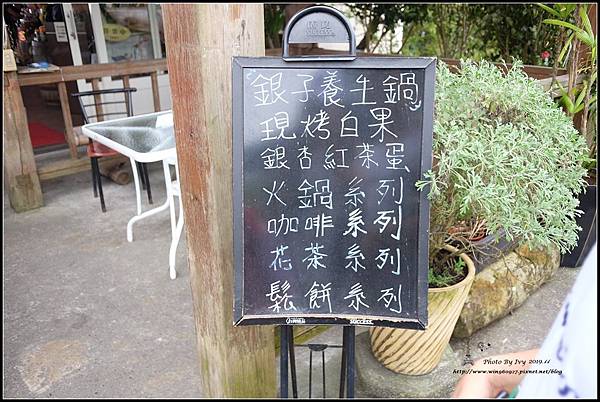 銀子養生鍋
現烤白果
銀杏紅茶蛋
火鍋系列
咖啡系列
花茶系列
鬆餅系列
Photo By Ivy 2019.11
http://www.win960917.pixnet.net/blog